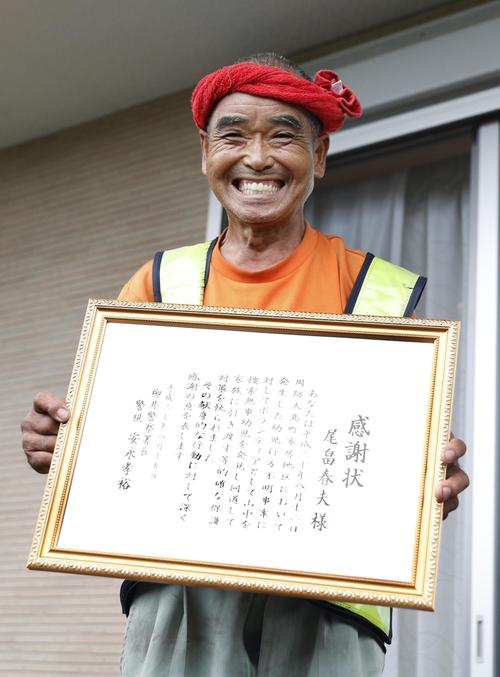 感謝状
尾畠春夫 様
あなたは平成三十年八月十二日
周防大島町家房地区において
発生した幼児行方不明事案に
対してボランティアとして山中を
捜索無事幼児を発見し同道して
家族に引き渡す等的確な保護
対策を執られました
その献身的な行動に対して深く
感謝の意を表します
平成三十年八月十五日
柳井警察署長
警視 安永孝裕